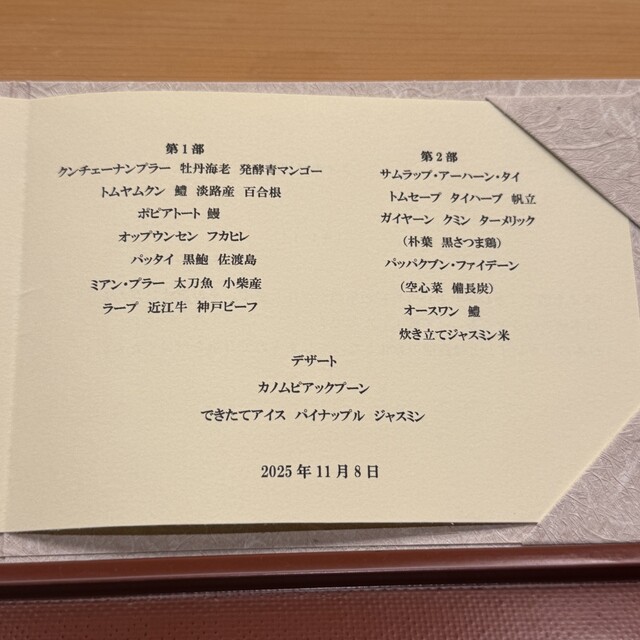 第1部
クンチェーナンプラー 牡丹海老 発酵青マンゴー
トムヤムクン 鱧 淡路産 百合根
ポピアトート 鰻
オップウンセン フカヒレ
パッタイ 黒鮑 佐渡島
ミアン・プラー 太刀魚 小柴産
ラープ 近江牛 神戸ビーフ
第2部
サムラップ・アーハーン・タイ
トムセープ タイハーブ 帆立
ガイヤーン クミン ターメリック
（朴葉 黒さつま鶏）
パッパクブン・ファイデーン
（空心菜 備長炭）
オースワン 鱧
炊き立てジャスミン米
デザート
カノムピアックプーン
できたてアイス パイナップル ジャスミン
2025年11月8日